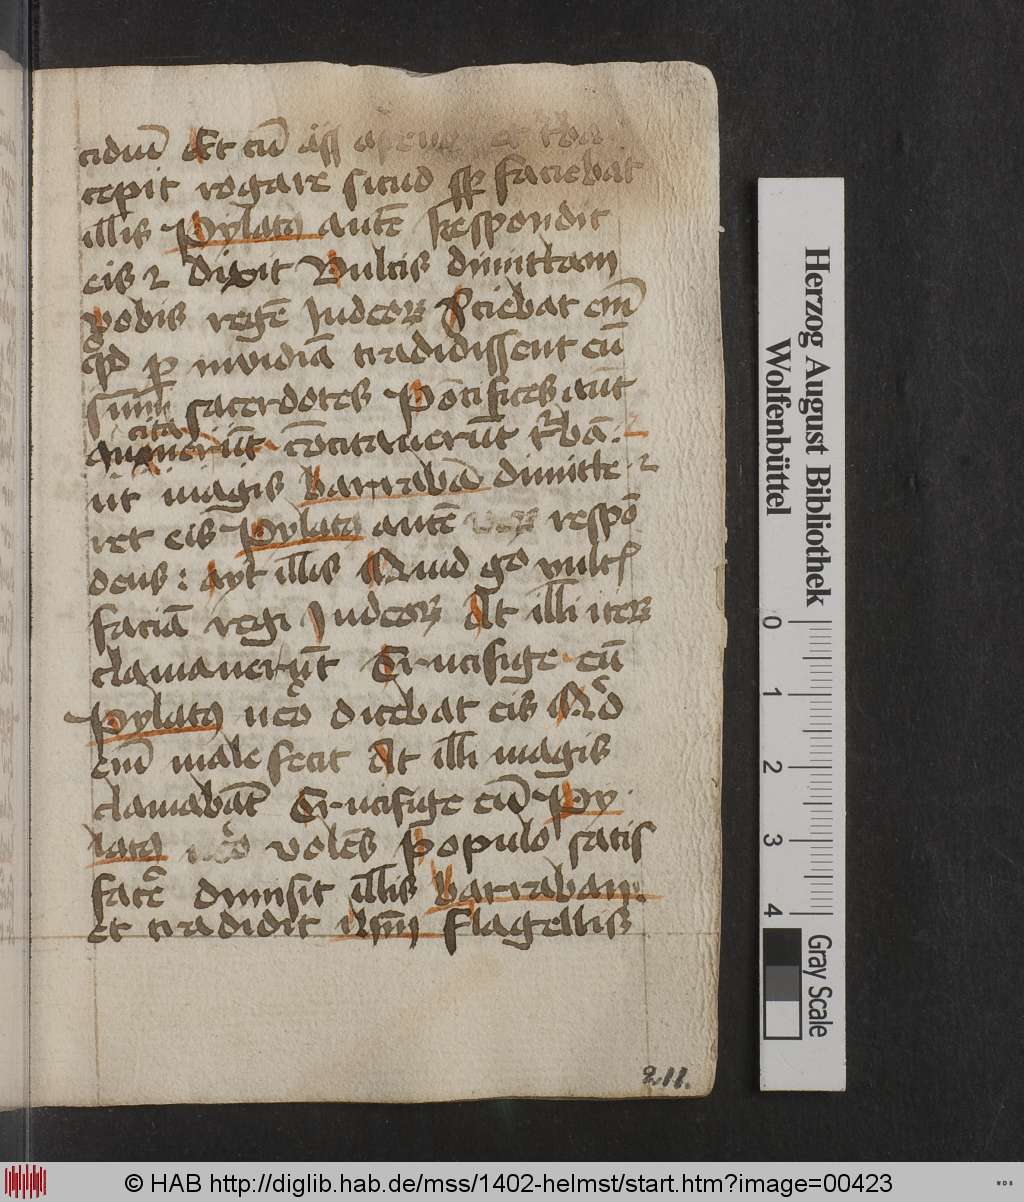 cidiū Et cū
cepit rogare sicud sp̄ faciebat
illis Pylatꝯ autē Respondit
eis ⁊ dixit Vultis dimittam
vobis regē Judeoꝝ Sciebat em̄
ꝙ ꝑ invidiā tradidissent eū
sūmi sacerdotes Pōtifices aūt
cita
ꝯcitaverūt t̄bā
ut magis barrabā dimitte
ret eis Pylatꝯ autē respō
dens : ayt illis Quid gͦ vultꝭ
faciā regi Judeoꝝ At illi iteꝝ
clamaverūt Crucifige eū
Pylatꝯ vͦo dicebat eis Qͥd
em̄ male fecit At illi magis
clamabāt Crucifige eū Py
latꝯ vͦo volēs populo satis
facͤe dimisit illis barraban
et tradidit ih̄m flagellis
211.
Herzog August Bibliothek
Wolfenbüttel
0 1 2 3 4
Gray Scale
© HAB http://diglib.hab.de/mss/1402-helmst/start.htm?image=00423